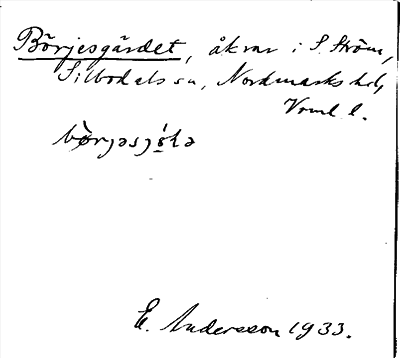 Börjesgärdet, åkrar i S. Ström,
Silbodals sn, Nordmarks hd,
Vrml. l.
E. Andersson 1933.